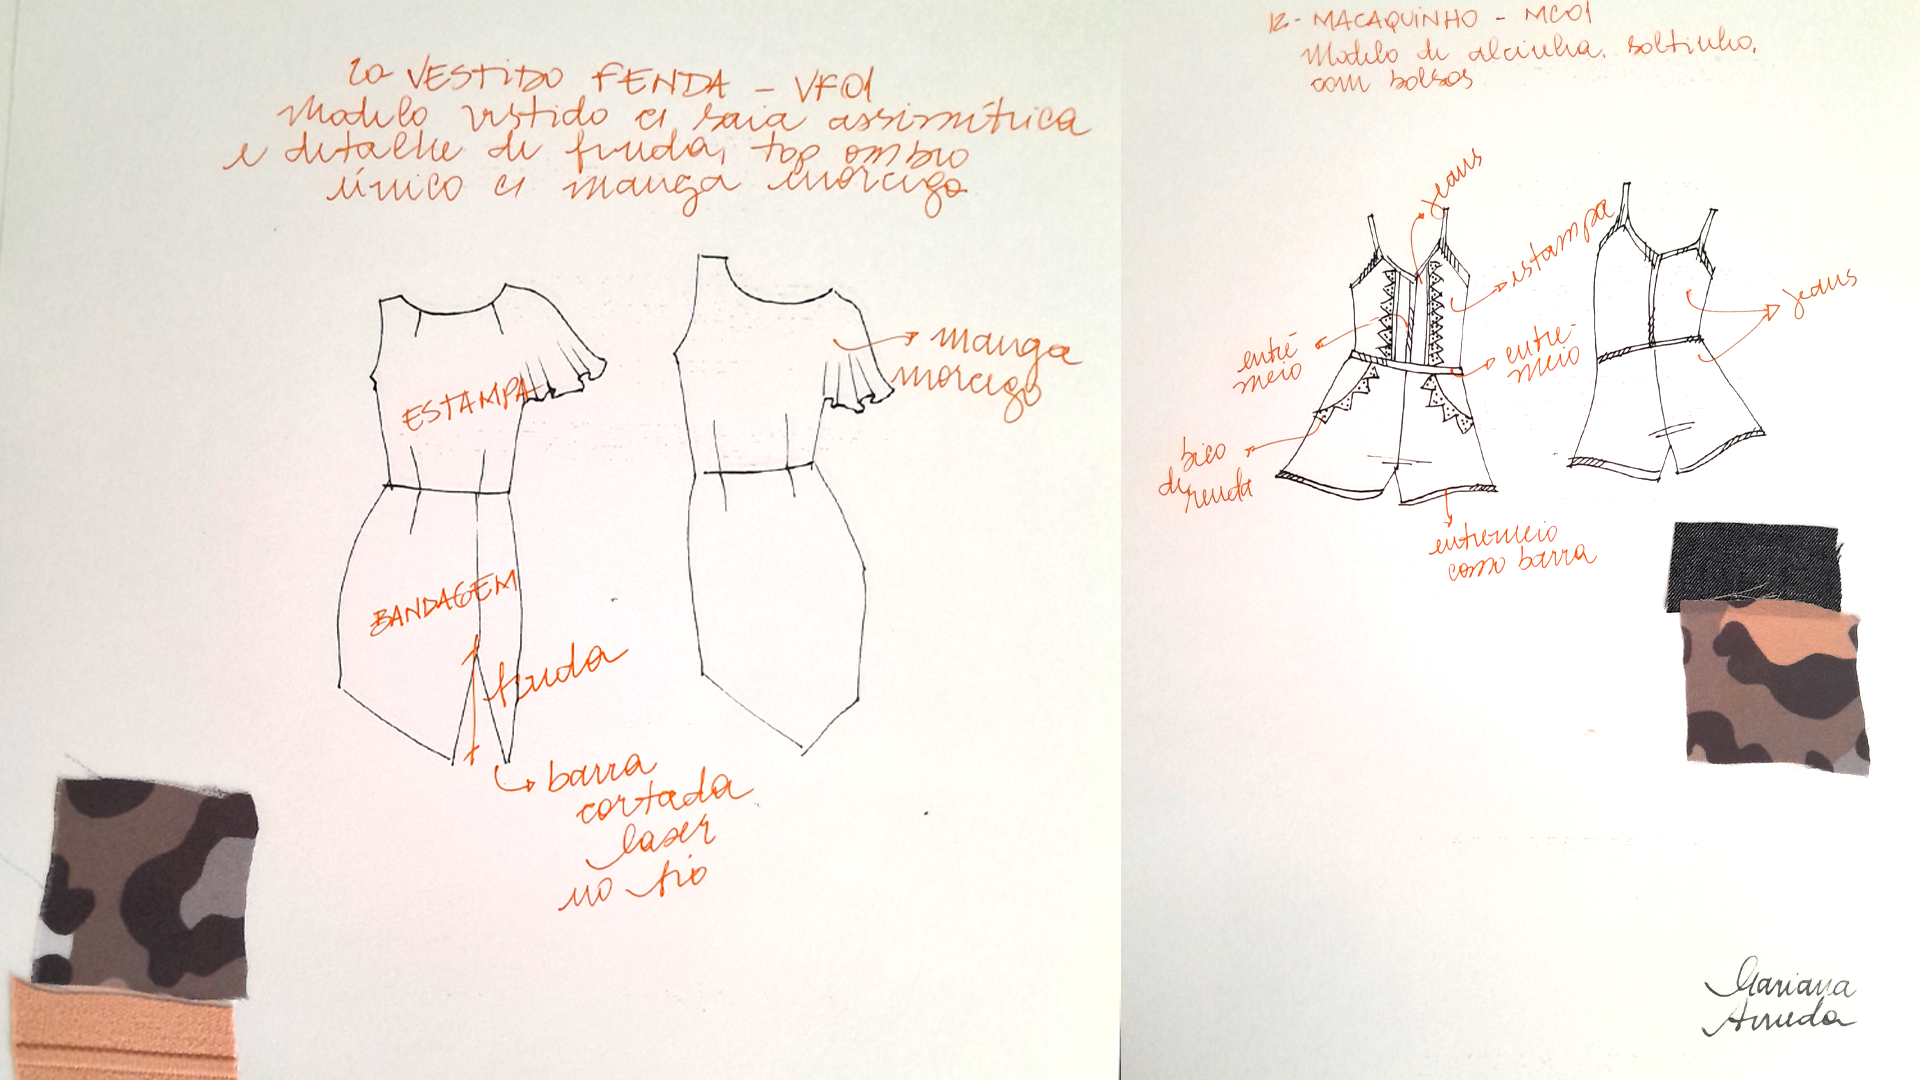 20 VESTIDO FENDA - VF01
Modelo vestido c/ saia assimétrica
e detalhe de fenda, top ombro
único c/ manga morcego
manga
morcego
ESTAMPA
BANDAGEM
fenda
barra
cortada
laser
no fio
12- MACAQUINHO - MC01
Modelo de alcinha, soltinho,
com bolsos
jeans
estampa
jeans
entre-
meio
entre-
meio
bico
de renda
entremeio
como barra
Mariana
Arruda